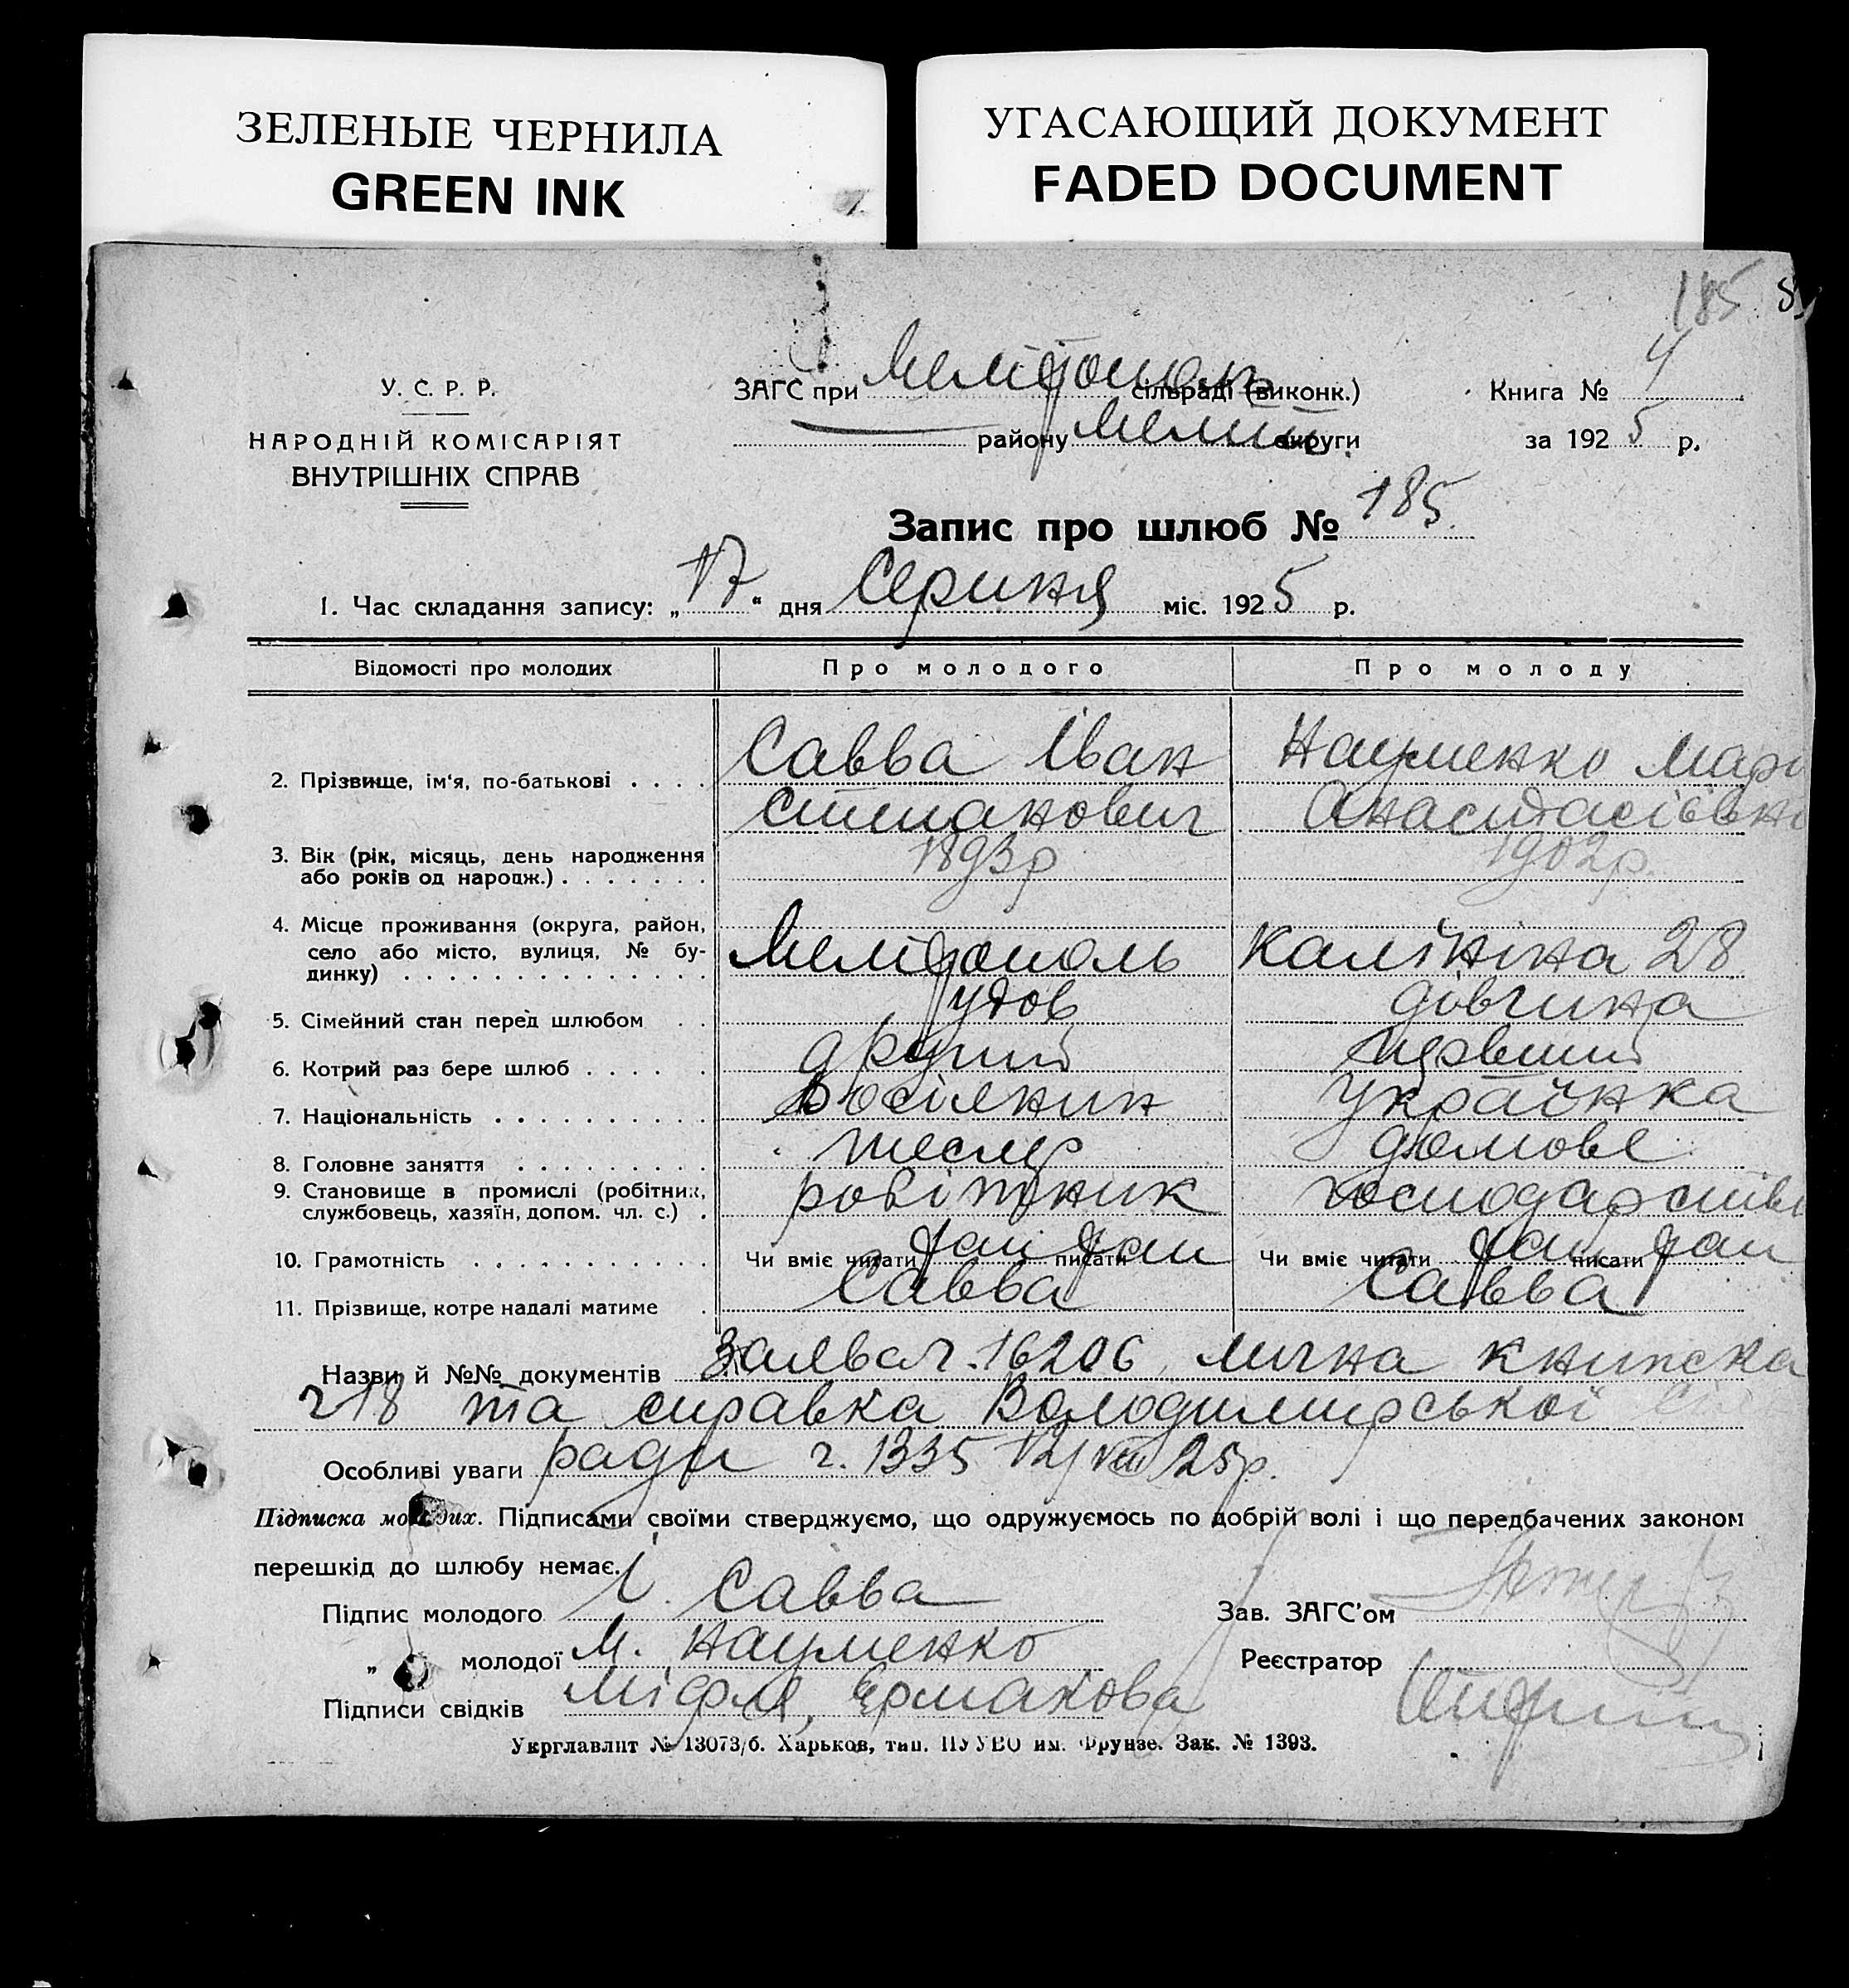 ЗЕЛЕНЫЕ ЧЕРНИЛА
GREEN INK
УГАСАЮЩИЙ ДОКУМЕНТ
FADED DOCUMENT
185
У. С. Р. Р.
НАРОДНІЙ КОМІСАРІЯТ
ВНУТРІШНІХ СПРАВ
ЗАГС при Мелітопол сільраді (виконк.)
району Меліт. округи
Книга № 4
за 1925 р.
Запис про шлюб № 185
1. Час складання запису: „17“ дня Серпня міс. 1925 р.
Відомості про молодих Про молодого Про молоду
2. Прізвище, ім'я, по-батькові . . . . Савва Іван Науменко Мар
Степанович Анастасіївн
3. Вік (рік, місяць, день народження 1893р 1902р.
або років од народж.) . . . . . . .
4. Місце проживання (округа, район,
село або місто, вулиця, № бу- Мелітополь Калініна 28
динку) . . . . . . . . . . . . . .
5. Сімейний стан перед шлюбом . . удов дівчина
6. Котрий раз бере шлюб . . . . . другий первший
7. Національність . . . . . . . . . . українка
8. Головне заняття . . . . . . . . . тесляр домове
9. Становище в промислі (робітник, робітник господарств
службовець, хазяїн, допом. чл. с.) .
10. Грамотність . . . . . . . . . . . Чи вміє читати так писати так Чи вміє читати так писати так
11. Прізвище, котре надалі матиме . Савва Савва
Назви й №№ документів 16206 лична книжка
ч18 та справка Володимирської сіл
Особливі уваги ради ч. 1335 12/VIII 25р.
Підписка молодих. Підписами своїми стверджуємо, що одружуємось по добрій волі і що передбачених законом
перешкід до шлюбу немає.
Підпис молодого І. Савва Зав. ЗАГС'ом
„ молодої М. Науменко Реєстратор
Підписи свідків Ермакова
Укрглавліт № 13073/б. Харьков, тип. ПУУВО им. Фрунзе. Зак. № 1393.